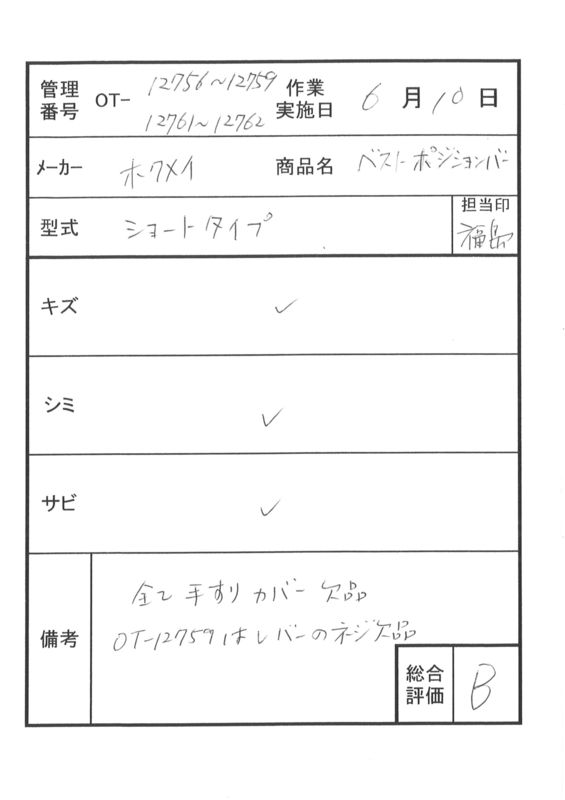 管理番号 OT- 12756～12759 12761～12762 作業実施日 6月10日
メーカー ホクメイ 商品名 ベストポジションバー
型式 ショートタイプ 担当印 福島
キズ ✓
シミ ✓
サビ ✓
備考 全て手すりカバー欠品
OT-12759はレバーのネジ欠品
総合評価 B